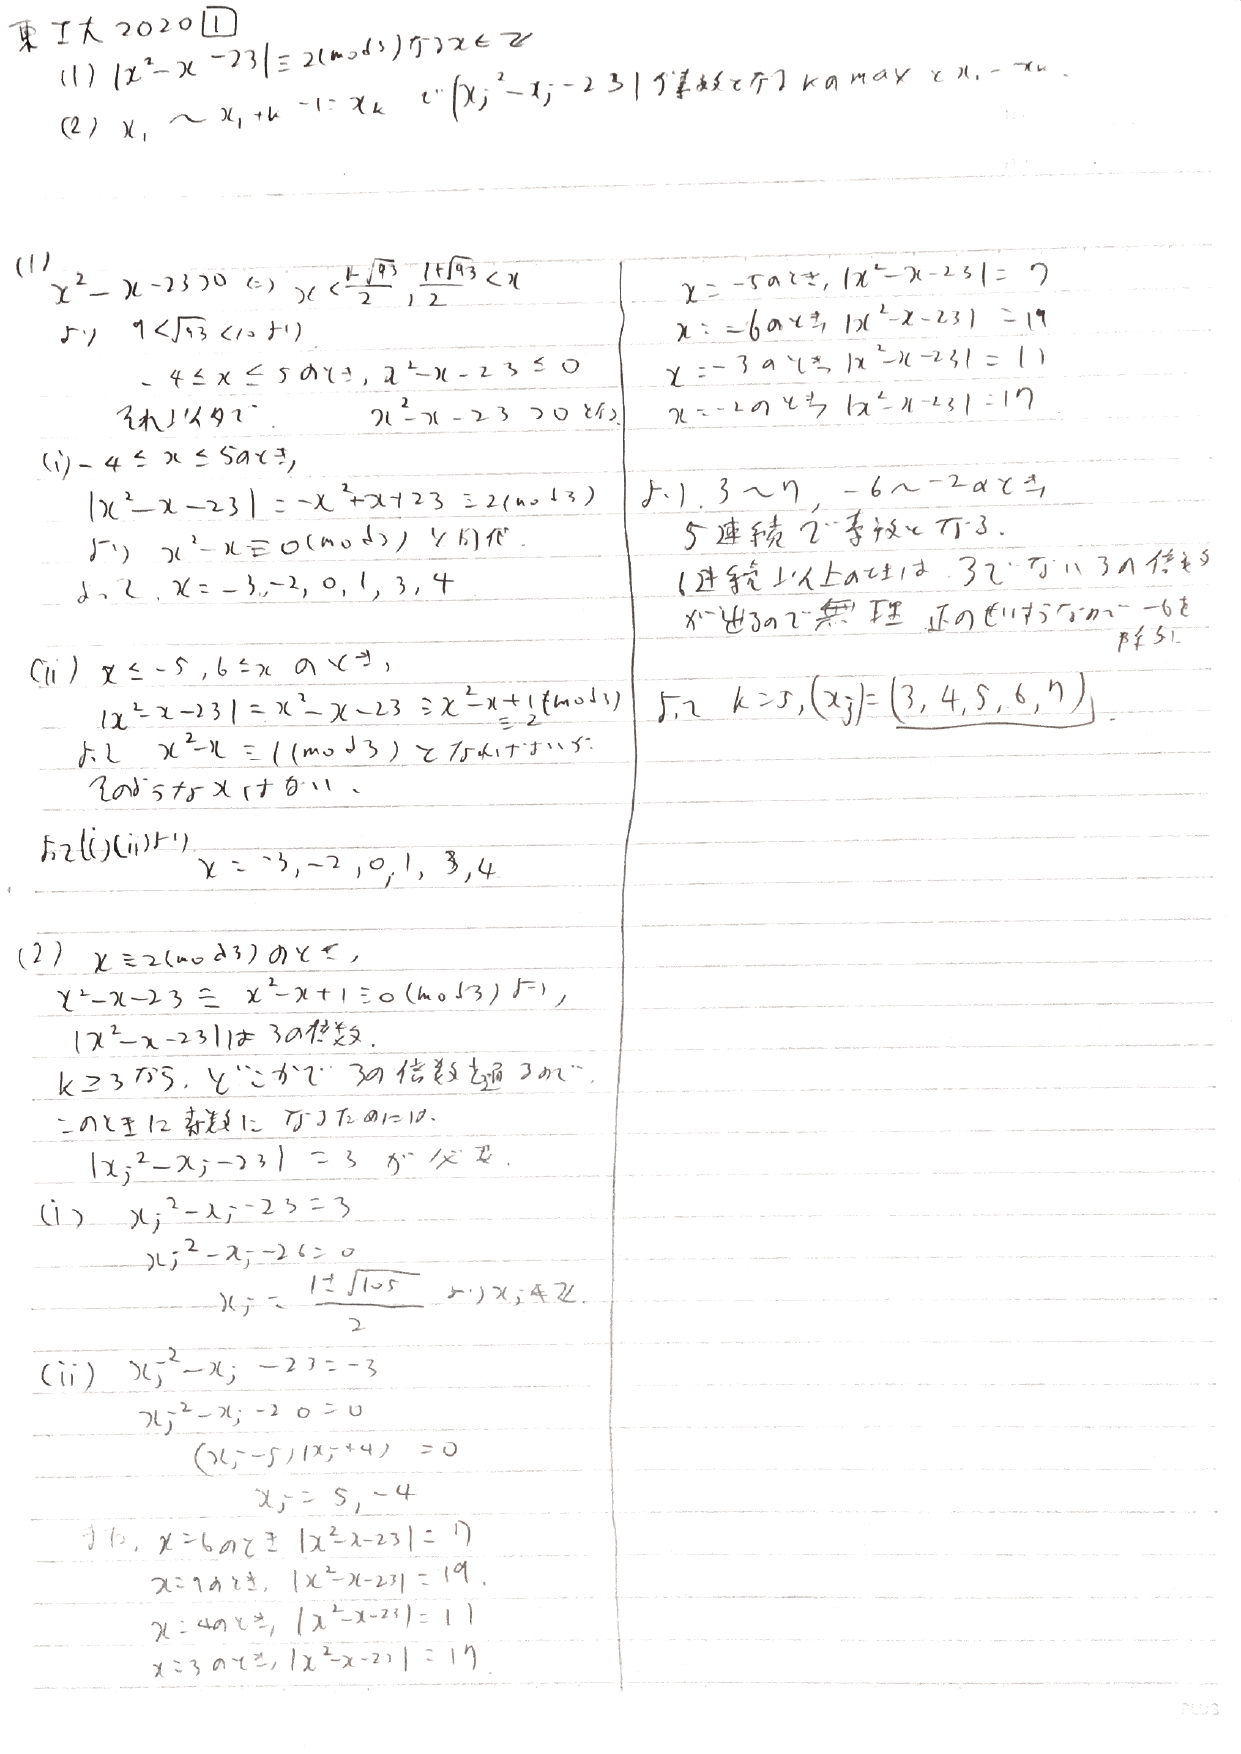 東工大 2020 1
(1) |x²-x-23|≡2(mod3)なるx∈Z
(2) x₁ ~ x₁+k-1=xₖ で|xⱼ²-xⱼ-23|が素数となるkのmaxとx₁~xₖ.
(1)
x²-x-23>0⇔x<(1-√93)/2, (1+√93)/2<x
より 9<√93<10より
-4≦x≦5のとき, x²-x-23≦0
それ以外で. x²-x-23>0となる
(i) -4≦x≦5のとき,
|x²-x-23|=-x²+x+23≡2(mod3)
より x²-x≡0(mod3)と同値.
よって. x=-3,-2,0,1,3,4
(ii) x≦-5, 6≦xのとき,
|x²-x-23|=x²-x-23≡x²-x+1(mod3)
≡2
よって x²-x≡1(mod3)となればよいが.
そのようなxはない.
よって(i)(ii)より
x=-3,-2,0,1,3,4
(2) x≡2(mod3)のとき,
x²-x-23≡x²-x+1≡0(mod3)より,
|x²-x-23|は3の倍数.
k≧3なら, どこかで3の倍数を通るので.
このときに素数になるためには.
|xⱼ²-xⱼ-23|=3が必要.
(i) xⱼ²-xⱼ-23=3
xⱼ²-xⱼ-26=0
xⱼ=(1±√105)/2 よりxⱼ∉Z.
(ii) xⱼ²-xⱼ-23=-3
xⱼ²-xⱼ-20=0
(xⱼ-5)(xⱼ+4)=0
xⱼ=5,-4
x=6のとき|x²-x-23|=7
x=7のとき, |x²-x-23|=19.
x=4のとき, |x²-x-23|=11
x=3のとき, |x²-x-23|=17
x=-5のとき, |x²-x-23|=7
x=-6のとき, |x²-x-23|=19
x=-3のとき, |x²-x-23|=11
x=-2のとき, |x²-x-23|=17
より. 3~7, -6~-2のとき,
5連続で素数となる.
6連続以上のときは 3でない3の倍数
が出るので無理 正のせいすうなので-6を
除外
よって k=5, (xⱼ)=(3,4,5,6,7).
PLUS